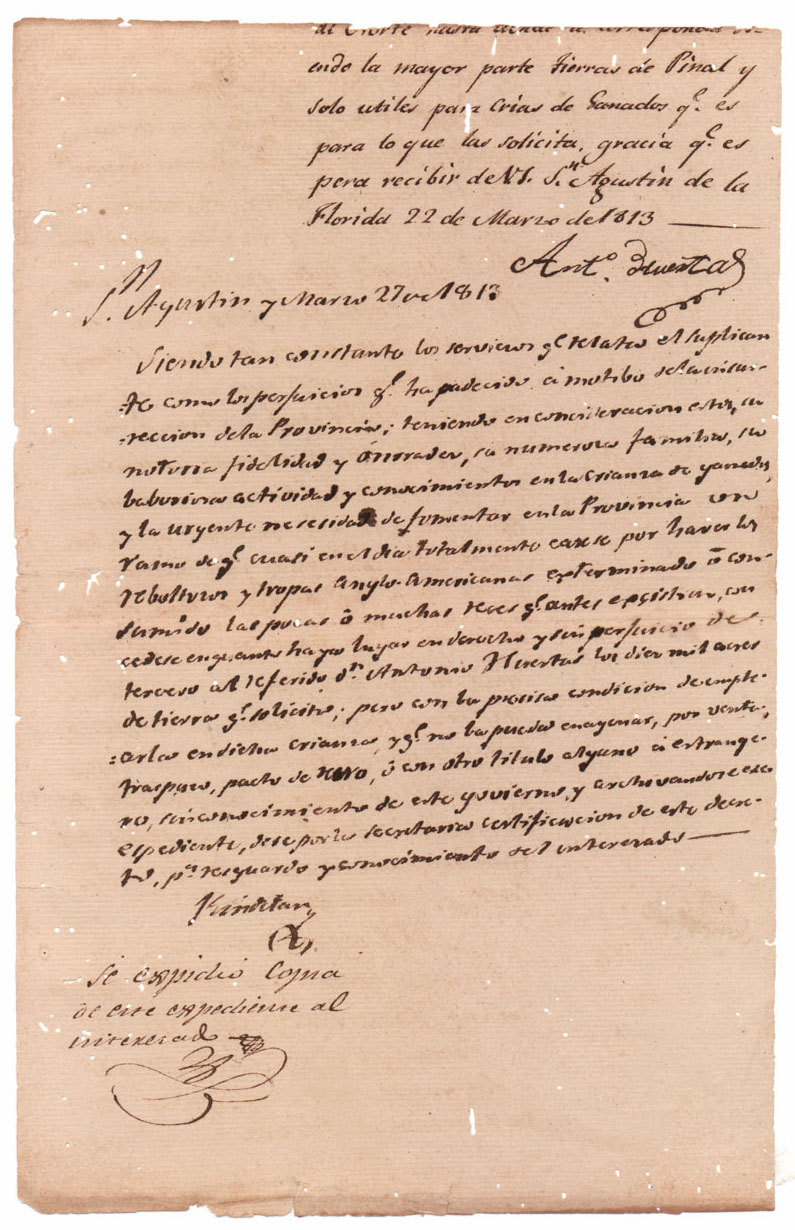 endo la mayor parte tierras de Pinal y
solo utiles para Crias de Ganados q.e es
para lo que las solicita, gracia q.e es
pera recibir de V.S. S.n Agustin de la
Florida 22 de Marzo de 1813
Ant.o Huertas
S.n Agustin y Marzo 27 de 1813
Siendo tan constante los servicios q.e relata el suplican
te como los perjuicios q.e ha padecido á motibo de la insur-
reccion de la Provincia; teniendo en concideracion estos, su
notoria fidelidad y ónrrades, su numerosa familia, su
laboriosa actividad y conocimientos en la crianza de ganados,
y la urgente necesidad de fomentar en la Provincia un
ramo de q.e cuasi en el dia totalmente carese por haver los
reboltosos y tropas Anglo-Americanas exterminado ó con-
sumido las pocas ó muchas reses q.e antes existian, con
cedese en quanto haya lugar en derecho y sin perjuicio de
tercero al referido d.n Antonio Huertas los diez mil acres
de tierra q.e solicita; pero con la precisa condicion de emple-
arlas en dicha crianza, y q.e no las pueda enagenar, por venta,
traspaso, pacto de retro, ó con otro titulo alguno á estrange-
ro, sin conocimiento de este govierno, y archivandose este
espediente, dese por la secretaria certificacion de este decre-
to, p.a resguardo y conocimiento del interesado
Kindelan
Se expidió Copia
de este expediente al
interesado